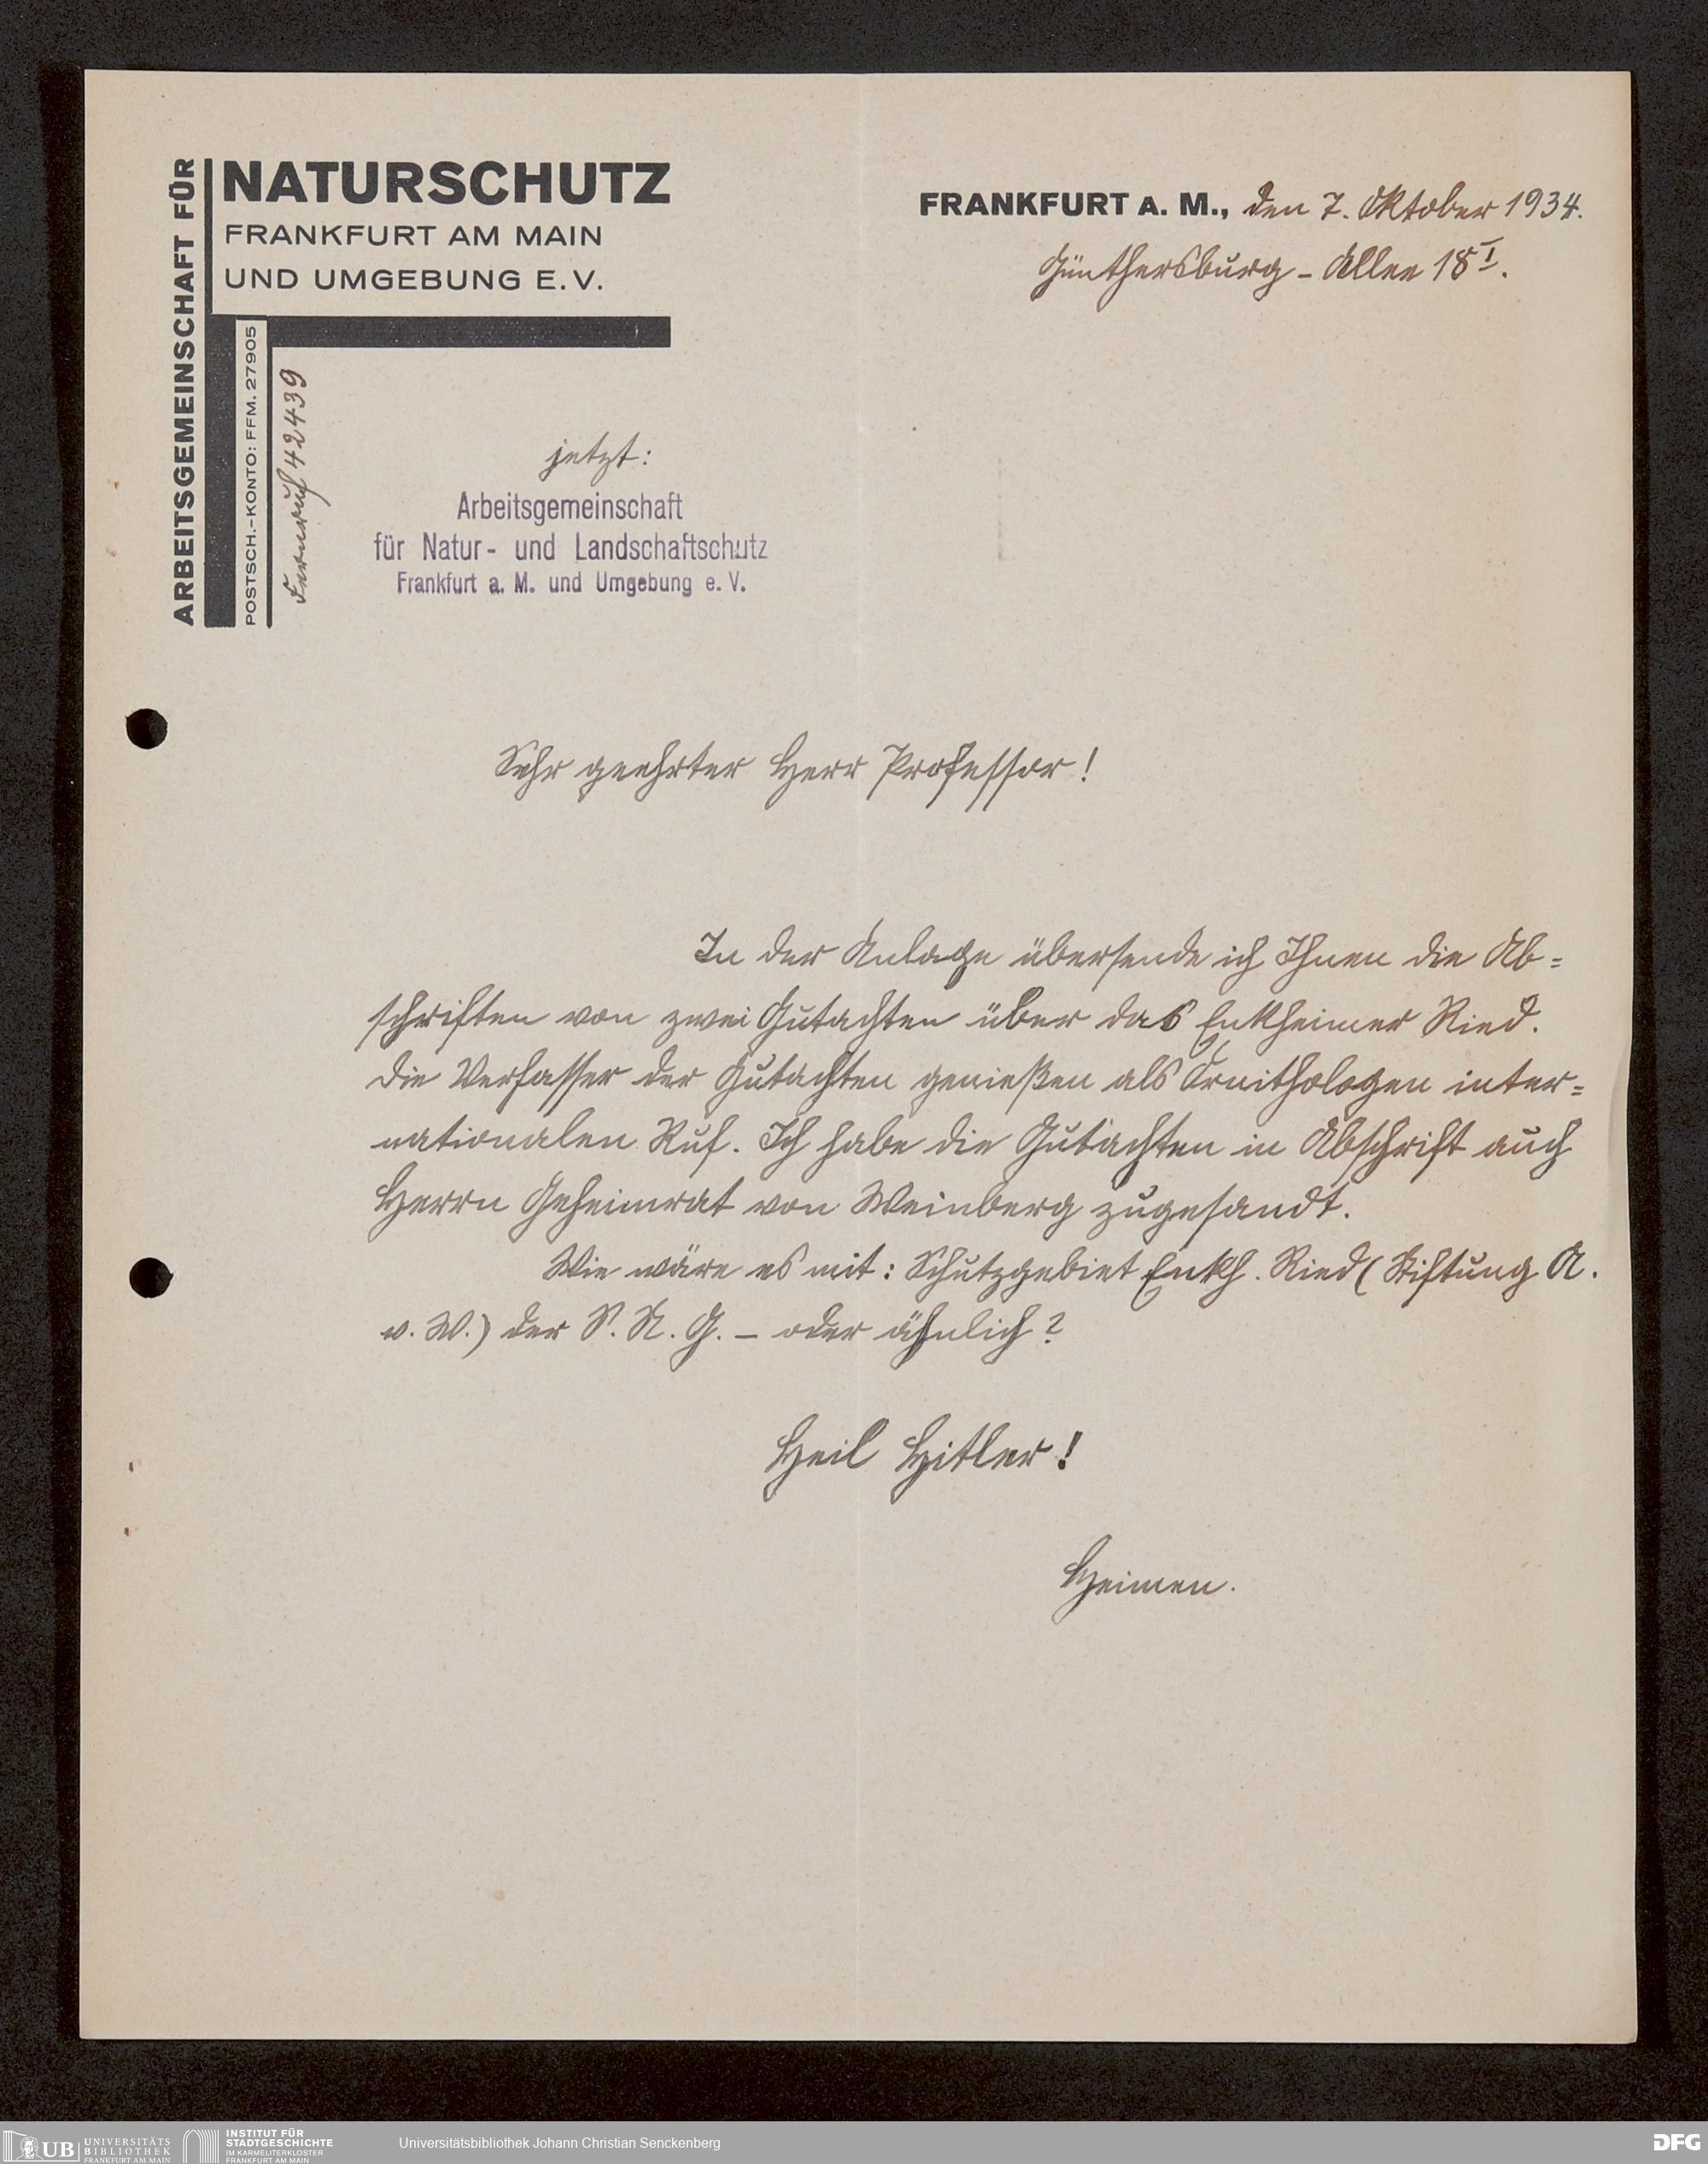 ARBEITSGEMEINSCHAFT FÜR
NATURSCHUTZ
FRANKFURT AM MAIN
UND UMGEBUNG E.V.
POSTSCH.-KONTO: FFM. 27905
Fernruf 42439
FRANKFURT A. M., den 7. Oktober 1934.
Günthersburg-Allee 18 I.
jetzt:
Arbeitsgemeinschaft
für Natur- und Landschaftschutz
Frankfurt a. M. und Umgebung e. V.
Sehr geehrter Herr Professor!
In der Anlage übersende ich Ihnen die Ab=
schriften von zwei Gutachten über das Enkheimer Ried.
Die Verfasser der Gutachten genießen als Ornithologen inter=
nationalen Ruf. Ich habe die Gutachten in Abschrift auch
Herrn Geheimrat von Weinberg zugesandt.
Wie wäre es mit: Schutzgebiet Enkh. Ried (Stiftung A.
v. W.) der S. N. G. – oder ähnlich?
Heil Hitler!
Heimen.
UB UNIVERSITÄTS
BIBLIOTHEK
FRANKFURT AM MAIN
INSTITUT FÜR
STADTGESCHICHTE
IM KARMELITERKLOSTER
FRANKFURT AM MAIN
Universitätsbibliothek Johann Christian Senckenberg
DFG